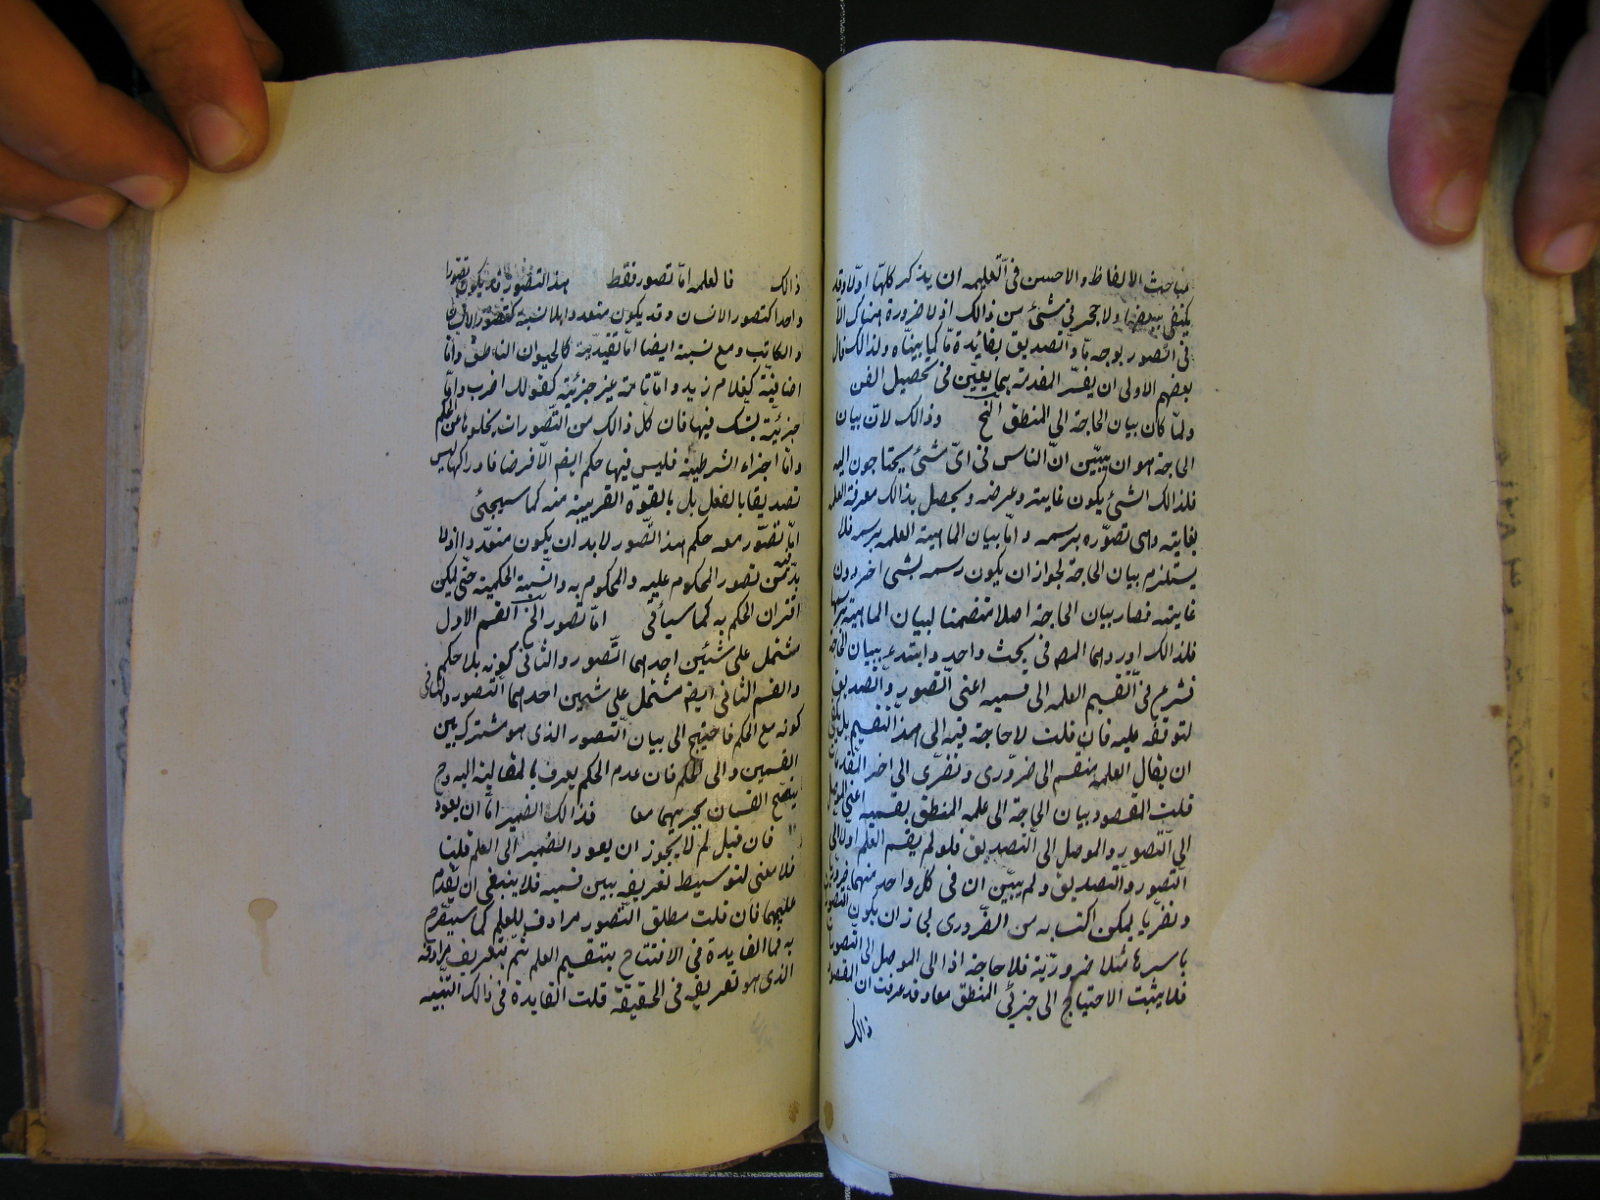 مباحث الالفاظ والاحسن فى التعليم ان يذكر كلها اولا وقد
يكتفى ببعضها ولا حجر فى شئ من ذالك اذ لا ضرورة هناك الا
فى التصور بوجه ما والتصديق بفائدة ما كما بيناه ولذالك قال
بعضهم الاولى ان يفسر المقدمة بما يعين فى تحصيل الفن
ولما كان بيان الحاجة الى المنطق الخ وذالك لان بيان
الحاجة هو ان يبين ان الناس فى اى شئ يحتاجون اليه
فلذالك الشئ يكون غايته وغرضه ويحصل بذالك معرفة العلم
بغايته وهى تصوره برسمه واما بيان الماهية العلم برسمه فلا
يستلزم بيان الحاجة لجواز ان يكون رسمه بشئ اخر دون
غايته فصار بيان الحاجة اصلا متضمنا لبيان الماهية برسمها
فلذالك اوردهما المص فى بحث واحد وابتدء ببيان الحاجة
فشرع فى التقسيم العلم الى قسميه اعنى التصور والتصديق
لتوقفه عليه فان قلت لا حاجة فيه الى هذا التقسيم بل يكفى
ان يقال العلم ينقسم الى ضرورى ونظرى الى اخر المقدمات
قلت المقصود بيان الحاجة الى علم المنطق بقسميه اعنى الموصل
الى التصور والموصل الى التصديق فلو لم يقسم العلم اولا الى
التصور والتصديق ولم يبين ان فى كل واحد منهما ضروريا
ونظريا يمكن اكتسابه من الضرورى لجاز ان يكون التصورات
باسرها مثلا ضرورية فلا حاجة اذا الى الموصل الى التصور
فلا يثبت الاحتياج الى جزئى المنطق معا وقد عرفت ان المقصود
ذالك
ذالك فالعلم اما تصور فقط هذا التصور قد يكون تصورا
واحدا كتصور الانسان وقد يكون متعددا بلا نسبة كتصور الانسان
والكاتب ومع نسبة ايضا اما تقيدية كالحيوان الناطق واما
اضافية كغلام زيد واما تامة غير جزئية كقولك اضرب واما
جزئية يشك فيها فان كل ذالك من التصورات يخلوها عن الحكم
واما اجزاء الشرطية فليس فيها حكم ايضا الا فرضا فادراكها ليس
تصديقا بالفعل بل بالقوة القريبة منه كما سيجئ
اما تصور معه حكم هذا التصور لا بد ان يكون متعددا اذ لا
بد من تصور المحكوم عليه والمحكوم به والنسبة الحكمية حتى يمكن
اقتران الحكم به كما سيأتى اما تصور الخ القسم الاول
مشتمل على شئين احدهما التصور والثانى كونه بلا حكم
والقسم الثانى ايضا مشتمل على شيئين احدهما التصور والثانى
كونه مع الحكم فاحتيج الى بيان التصور الذى هو مشترك بين
القسمين والى الحكم فان عدم الحكم يعرف بالمقايسة اليه وح
يتضح القسمان بجزئيهما معا فذالك الضمير اما ان يعود
فان قيل لم لا يجوز ان يعود الضمير الى العلم قلنا
فلا معنى لتوسيط تعريفه بين قسميه فلا ينبغى ان يقدم
عليهما فان قلت مطلق التصور مرادف للعلم كما سيصرح
به فما الفايدة فى الافتتاح بتقسيم العلم ثم بتعريف مرادفه
الذى هو تعريفه فى الحقيقة قلت الفايدة فى ذالك التنبيه